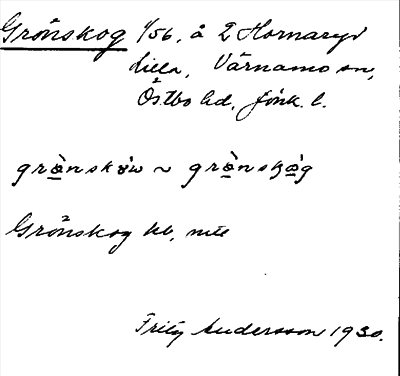 Grönskog 1/56, å 2 Hornaryd
Lilla, Värnamo sn,
Östbo hd, Jönk. l.
grö̀nskòw ~ grö̀nskò̱g
Grönskog
Fritz Andersson 1930.